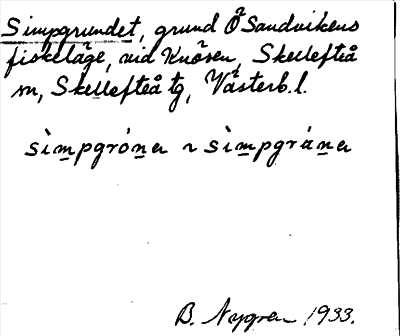 Simpgrundet, grund Ö Sandvikens
fiskeläge, vid Knösen, Skellefteå
sn, Skellefteå tg, Västerb. l.
sìmpgróṉeꞃ ~ sìmpgráṉeꞃ
B. Nygren 1933.